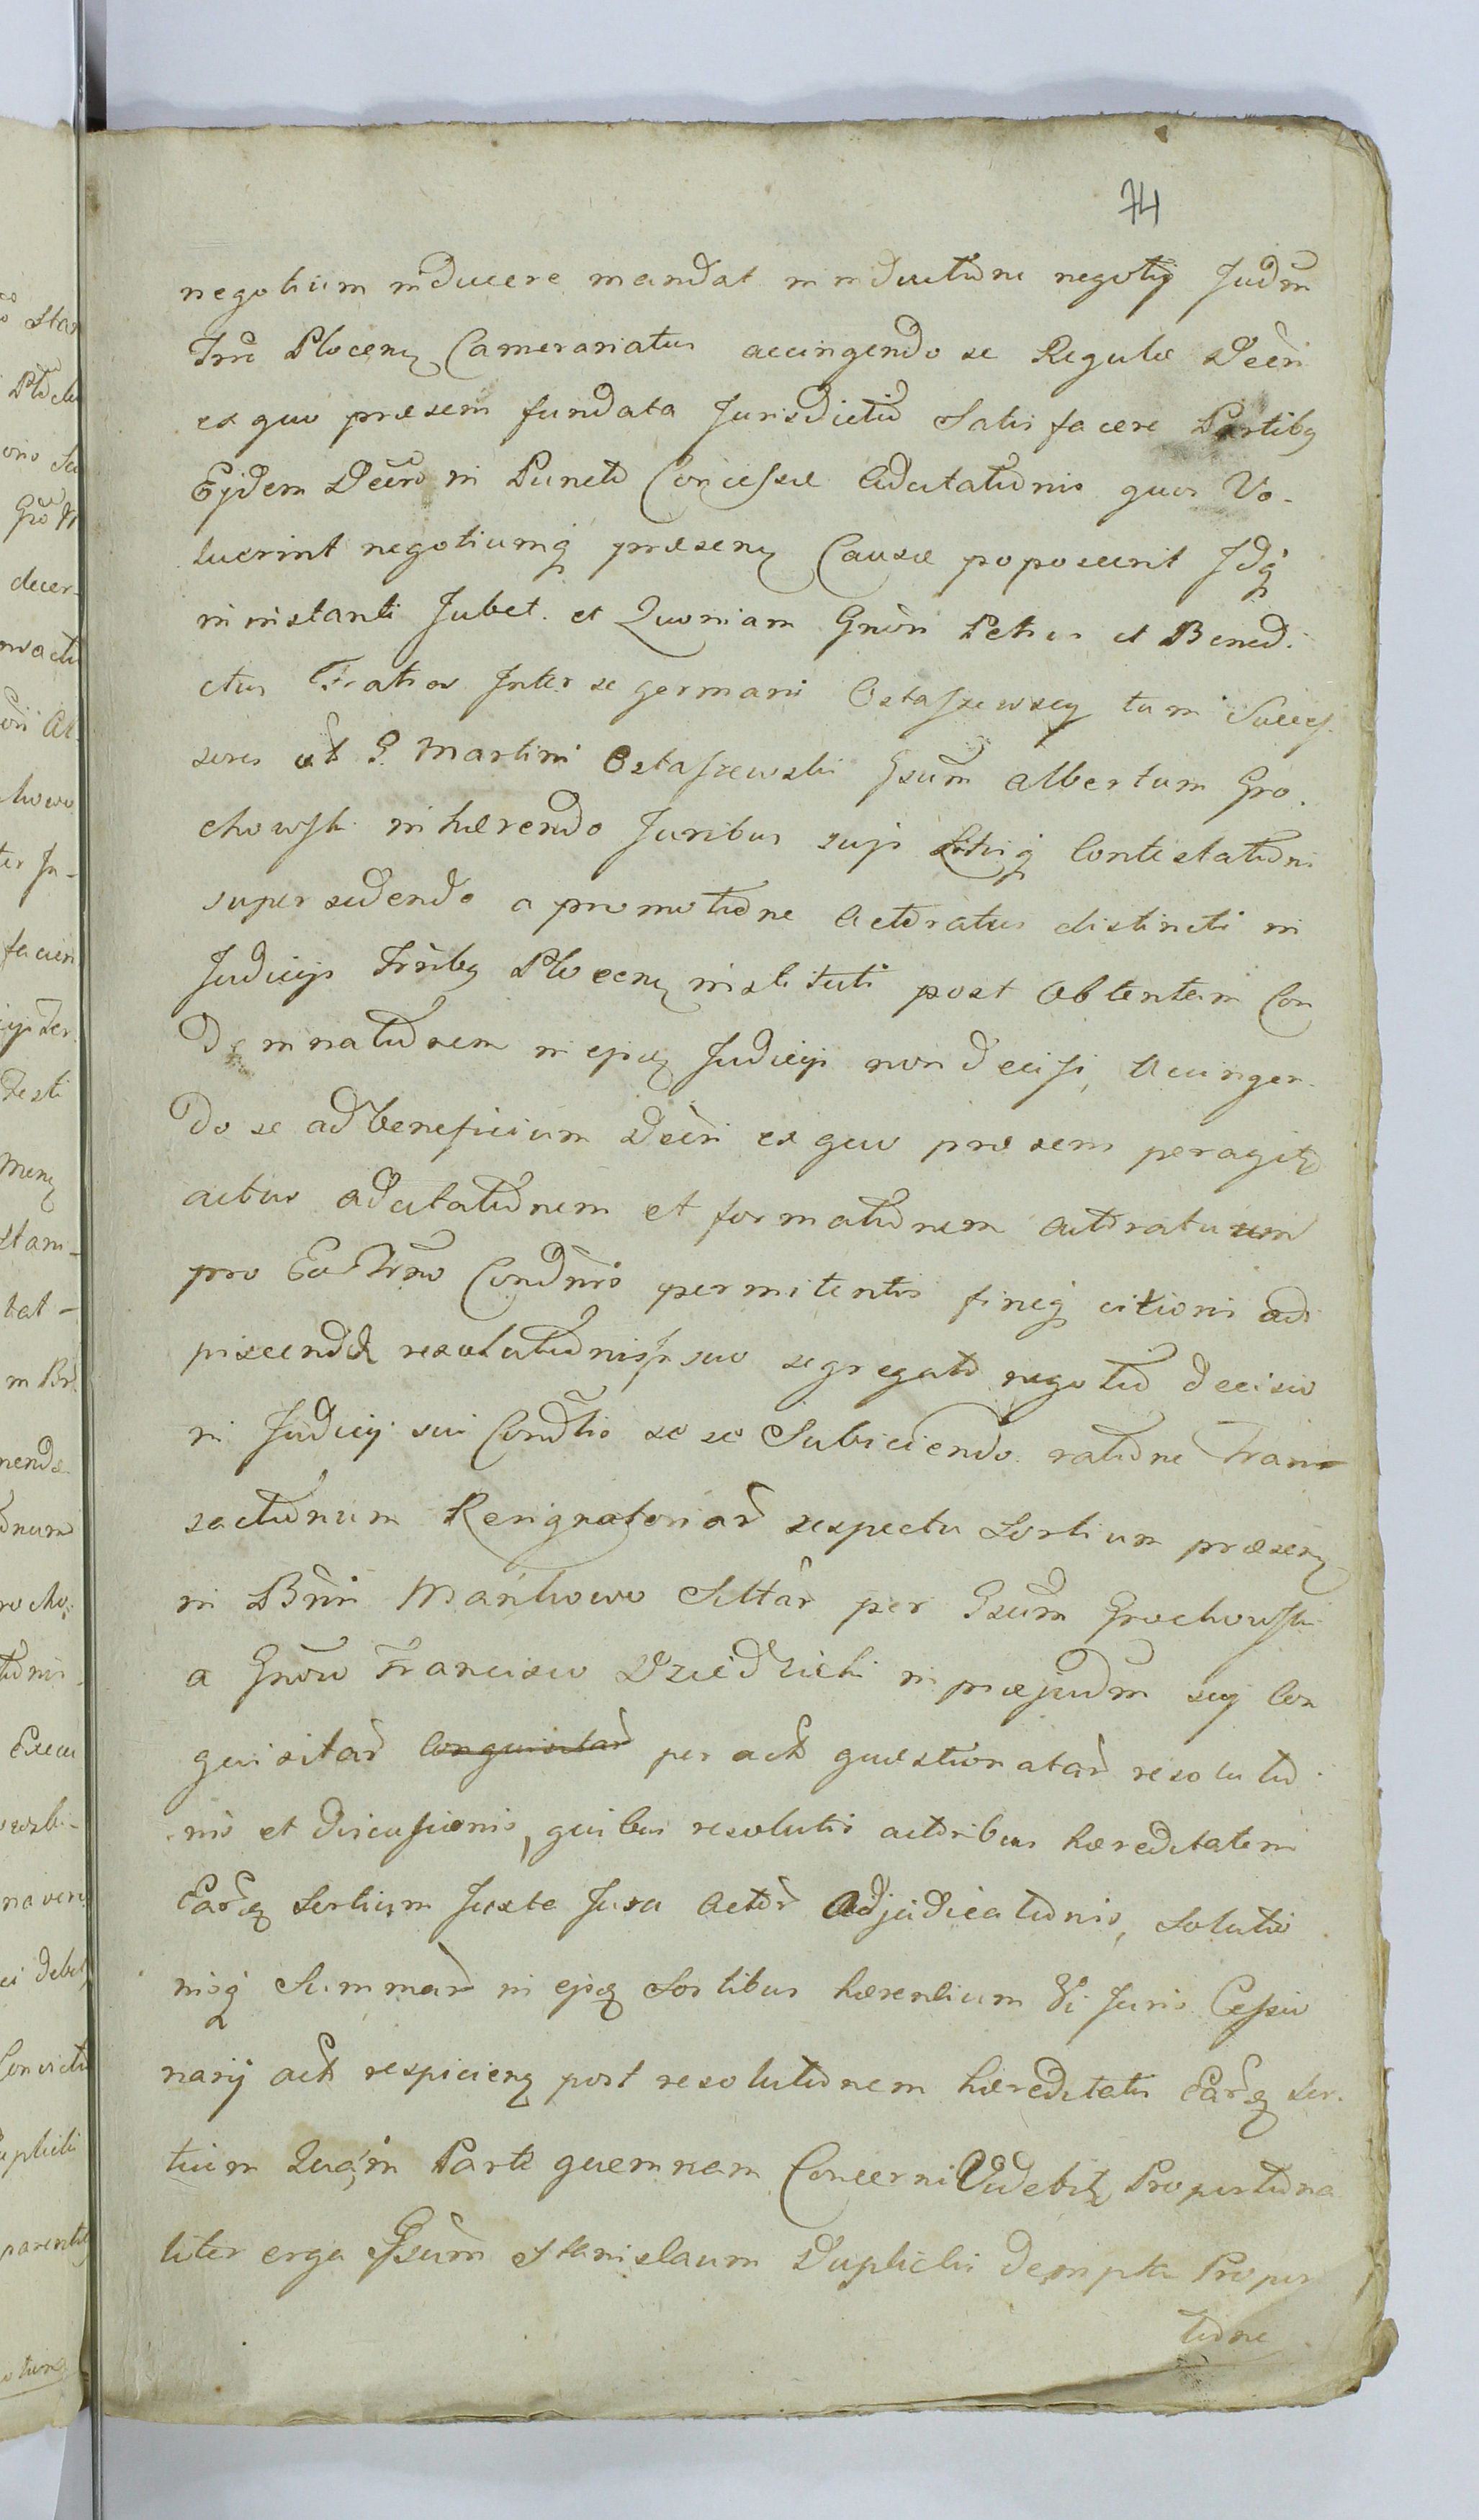 74
negotium inducere mandat in inductione negotii Judm
Trri Plocen Camerariatus accingendo se Regulæ Decri
ex quo præsens fundata Jurisdictio Satisfacere Partibq
Ejdem Decro in Puncto Concessæ Adcitationis quos Vo-
luerint negotiumq præsens Causæ poposcerit Idq
in instanti Jubet. et Quoniam Gnosi Petrus et Bened.
ctus Fratres Inter se germani Ostaszewscy tum Succes
sores olt G. Martini Ostaszewski Gsum Albertum Gro.
chowski inhærendo Juribus suis Litisq Contestationi
supersedendo a promotione Actoratus distincti in
Judicijs Trribq Plocen instituti post Obtentam Con
Demnationem in ejsq Judicijs non decisi, Accingen
do se ad beneficium Decri ex quo præsens peragitr
actus adcitationem et formationem actoratuum
pro Eo Trno Condnis permitentis fineq citioris adi
piscendæ resolutionis Ipsuo segregato negotio deciso
in Judicij sui Condtio se se Subiiciendo ratione Tran
sactionum Resignatoriar respectu Sortium præsen
in Bnis Mańkowo Sittar per Gsum Grochowski
a Gnoso Francisco Dziedzicki in præjudm suj Con
quisitar conquisitar per act quæstionatar resolutio
nis et discussionis, quibus resolutis actoribus hæreditatem
Earq Sortium Juxta Jura Actor Adjudicationis, Solutio
nisq Summar in ejsq Sortibus hærentium Vi Juris Cessio
narij act respicien post resolutionem hæreditatis Earq Sor.
tium Quam Parte quemnam Concerni Videbitr Proportiona
liter erga Gsum Stanislaum Duplicki dempta Propor
tione